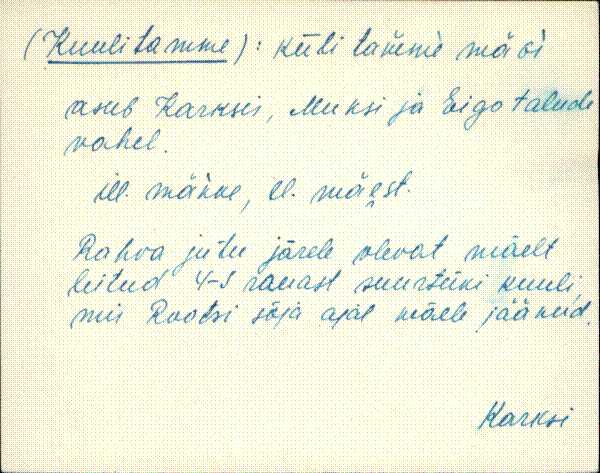 (Kuulitamme): küti tamme mäȯi
asub Karksis, Muksi ja Eigo talude
vahel.
ill. mäkke, el. mäest.
Rahva jutu järele olevat mäelt
leitud 4-5 rauast suurtüki kuuli,
mis Rootsi sõja ajal mäele jäänud.
Karksi